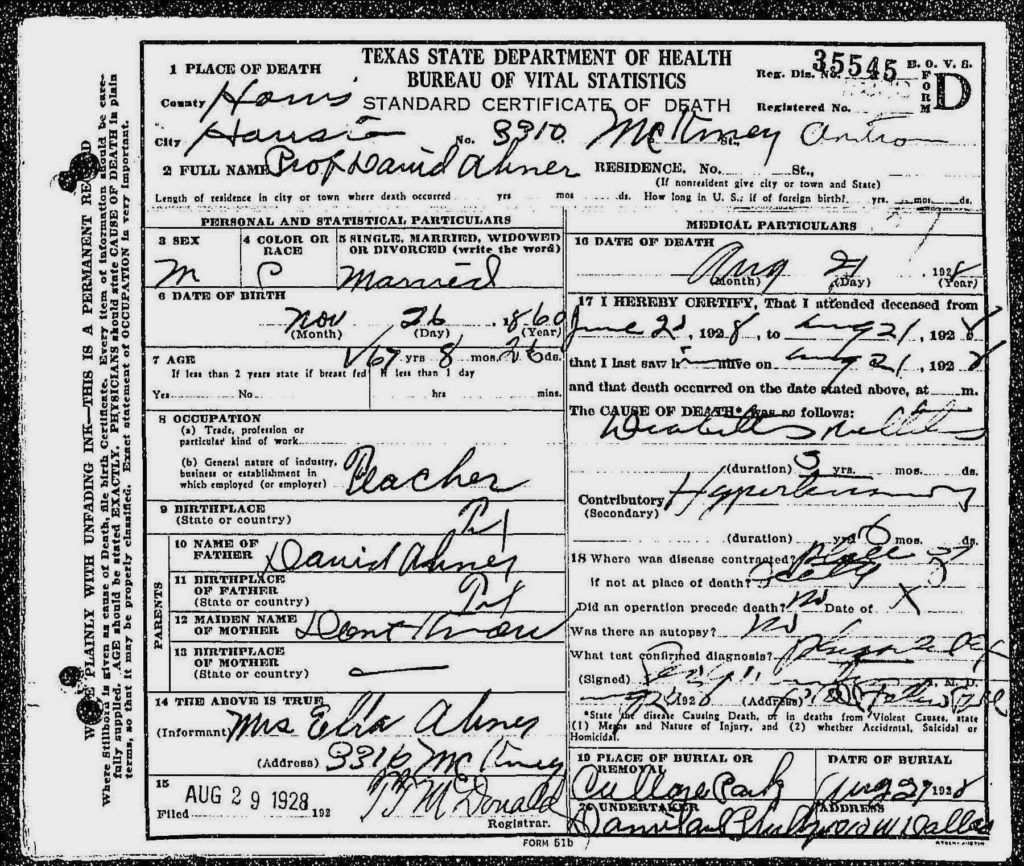 TEXAS STATE DEPARTMENT OF HEALTH
BUREAU OF VITAL STATISTICS
STANDARD CERTIFICATE OF DEATH
Reg. Dis. No. 35545 B. O. V. S.
Registered No. FORM D
1 PLACE OF DEATH
County Harris
City Houston No. 3310 McKinney St.,
2 FULL NAME Prof David Abner RESIDENCE. No. St.,
(If nonresident give city or town and State)
Length of residence in city or town where death occurred yrs mos ds. How long in U. S.; if of foreign birth?. yrs. mos. ds.
PERSONAL AND STATISTICAL PARTICULARS
3 SEX
M
4 COLOR OR RACE
C
5 SINGLE, MARRIED, WIDOWED
OR DIVORCED (write the word)
Married
6 DATE OF BIRTH
Nov 26, 1860
(Month) (Day) (Year)
7 AGE 67 yrs 8 mos. 26 ds.
If less than 2 years state if breast fed If less than 1 day
Yes No hrs mins.
8 OCCUPATION
(a) Trade, profession or
particular kind of work
(b) General nature of industry,
business or establishment in
which employed (or employer) Teacher
9 BIRTHPLACE
(State or country)
PARENTS
10 NAME OF
FATHER David Abner
11 BIRTHPLACE
OF FATHER
(State or country)
12 MAIDEN NAME
OF MOTHER Dont Know
13 BIRTHPLACE
OF MOTHER
(State or country)
14 THE ABOVE IS TRUE
(Informant) Mrs Ella Abner
(Address) 3310 McKinney
15
Filed AUG 29 1928 192
McDonald
Registrar.
MEDICAL PARTICULARS
16 DATE OF DEATH
Aug 21, 1928
(Month) (Day) (Year)
17 I HEREBY CERTIFY, That I attended deceased from
June, 1928, to Aug 21, 1928
that I last saw h alive on Aug 21, 1928
and that death occurred on the date stated above, at m.
The CAUSE OF DEATH* was as follows:
Diabetes Mellitus
(duration) yrs. mos. ds.
Contributory Hypertension
(Secondary)
(duration) 6 mos. ds.
18 Where was disease contracted?
if not at place of death?
Did an operation precede death? No Date of X
Was there an autopsy? No
What test confirmed diagnosis?
(Signed) M. D.
1928 (Address)
*State the disease Causing Death, or in deaths from Violent Causes, state
(1) Means and Nature of Injury, and (2) whether Accidental, Suicidal or
Homicidal.
19 PLACE OF BURIAL OR
REMOVAL
Park
DATE OF BURIAL
Aug 27 1928
20 UNDERTAKER
ADDRESS
W Dallas
FORM 51b
WRITE PLAINLY WITH UNFADING INK—THIS IS A PERMANENT RECORD
Where Stillborn is given as cause of Death, file birth Certificate. Every item of information should be care-
fully supplied. AGE should be stated EXACTLY. PHYSICIANS should state CAUSE OF DEATH in plain
terms, so that it may be properly classified. Exact statement of OCCUPATION is very important.